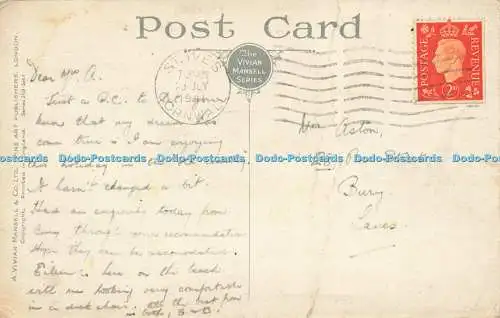 Post Card
The
VIVIAN
MANSELL
SERIES
ST. IVES
JLY
CORNWALL
POSTAGE
REVENUE
2D
A. VIVIAN MANSELL & CO. LTD., FINE ART PUBLISHERS, LONDON.
Copyright.
Dear Mrs A.
Just a P.C. to let you
know that my dream has
come true & I am enjoying
this holiday in the
It hasn't changed a bit.
Had an enquiry today from
Bury through your recommendation
Hope they can be accommodated.
Eileen is here on the beach
with me looking very comfortable
in a deck chair. All the best from
us both, S-B.
Mrs Acton,
Bury,
Lancs
Dodo-Postcards Dodo-Postcards Dodo-Postcards Dodo-Postcards